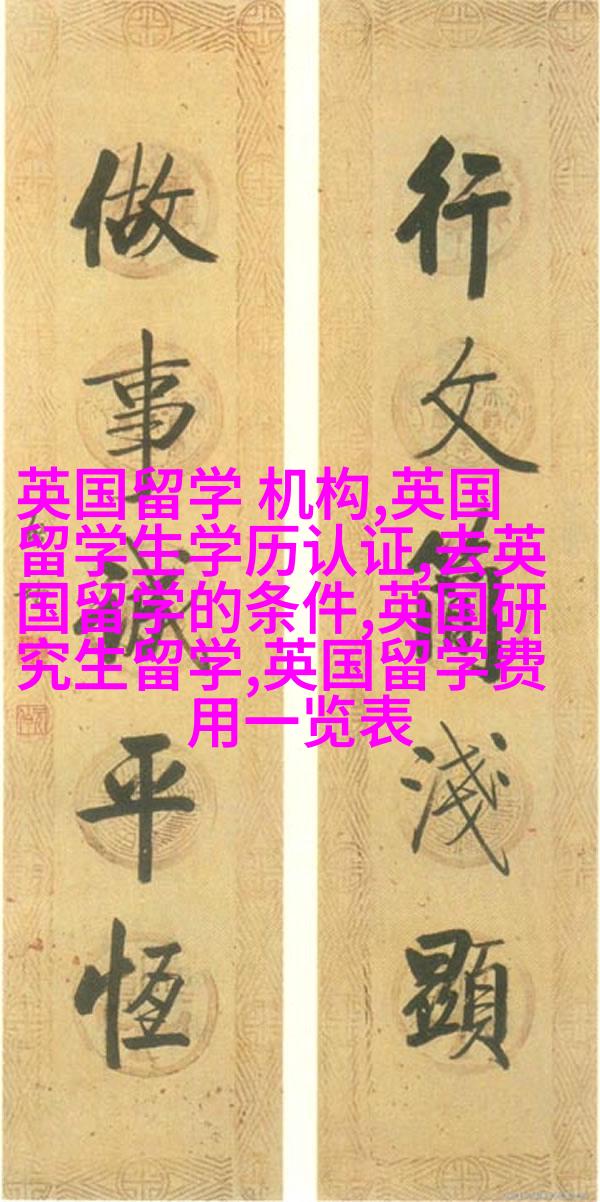 行文簡淺顯
做事誠平恆
英国留学 机构,英国
留学生学历认证,去英
国留学的条件,英国研
究生留学,英国留学费
用一览表